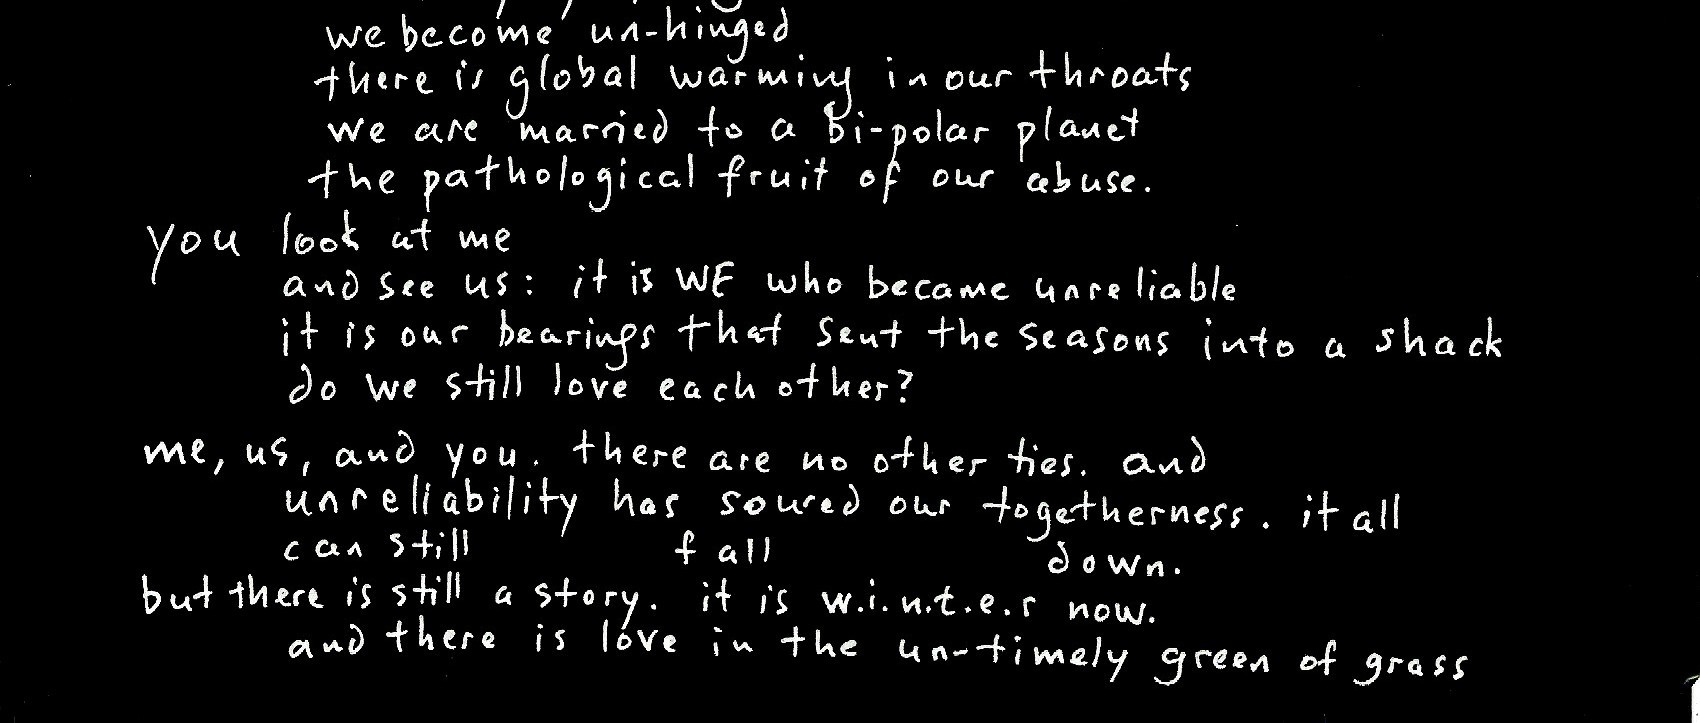 we become un-hinged
there is global warming in our throats
we are married to a bi-polar planet
the pathological fruit of our abuse.
you look at me
and see us: it is WE who became unreliable
it is our bearings that sent the seasons into a shack
do we still love each other?
me, us, and you. there are no other ties. and
unreliability has soured our togetherness. it all
can still fall down.
but there is still a story. it is w.i.n.t.e.r now.
and there is love in the un-timely green of grass